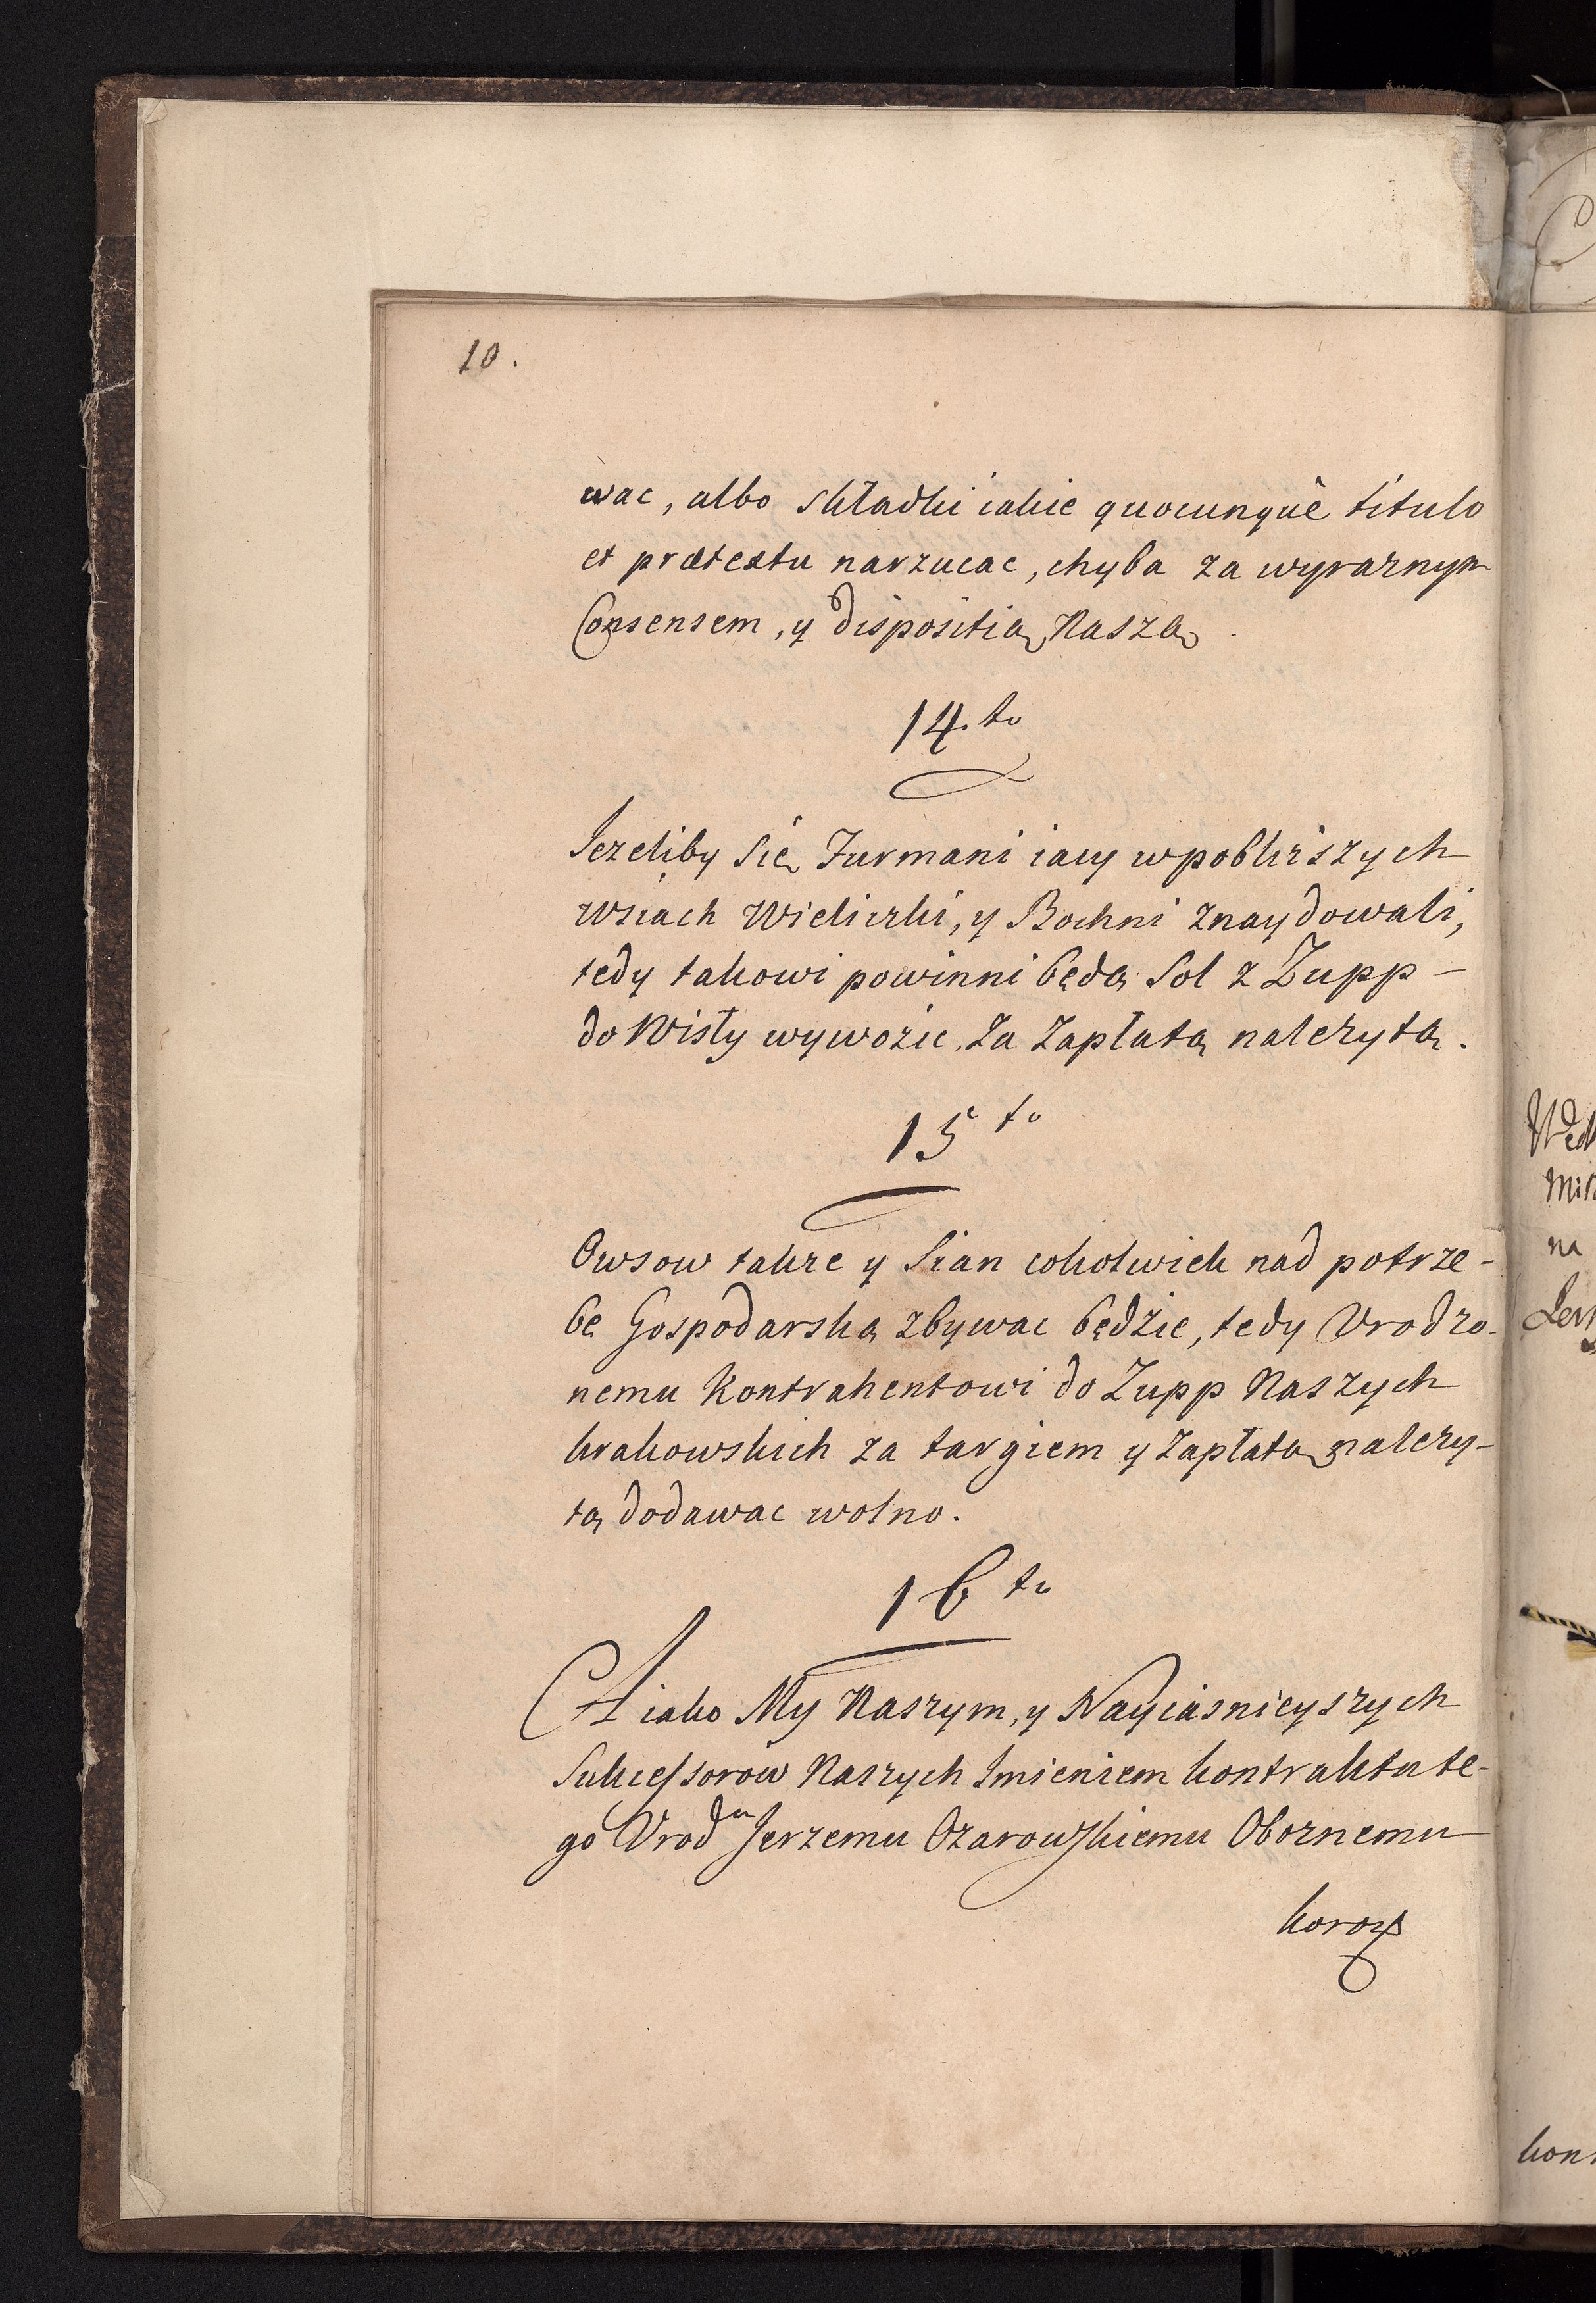 10.
wac, albo składki iakie quocunque titulo
et prætextu narzucac, chyba za wyraznym
Consensem, y dispositią Naszą
14.to
Jezeliby się Furmani iacy w poblizszych
wsiach Wieliczki, y Bochni znaydowali,
tedy takowi powinni będą Sol z Zupp
do Wisły wywozic, za zapłatą nalezytą.
15to
Owsow takze y Sian cokolwiek nad potrze-
bę Gospodarską zbywac będzie, tedy Vrodzo-
nemu Kontrahentowi do Zupp Naszych
krakowskich za targiem y zapłatą nalezy-
tą dodawac wolno.
16to
A iako My Naszym, y Nayiasnieyszych
Sukcessorow Naszych Imieniem kontraktu te-
go Vrodmu Jerzemu Ozarowskiemu Oboznemu
na